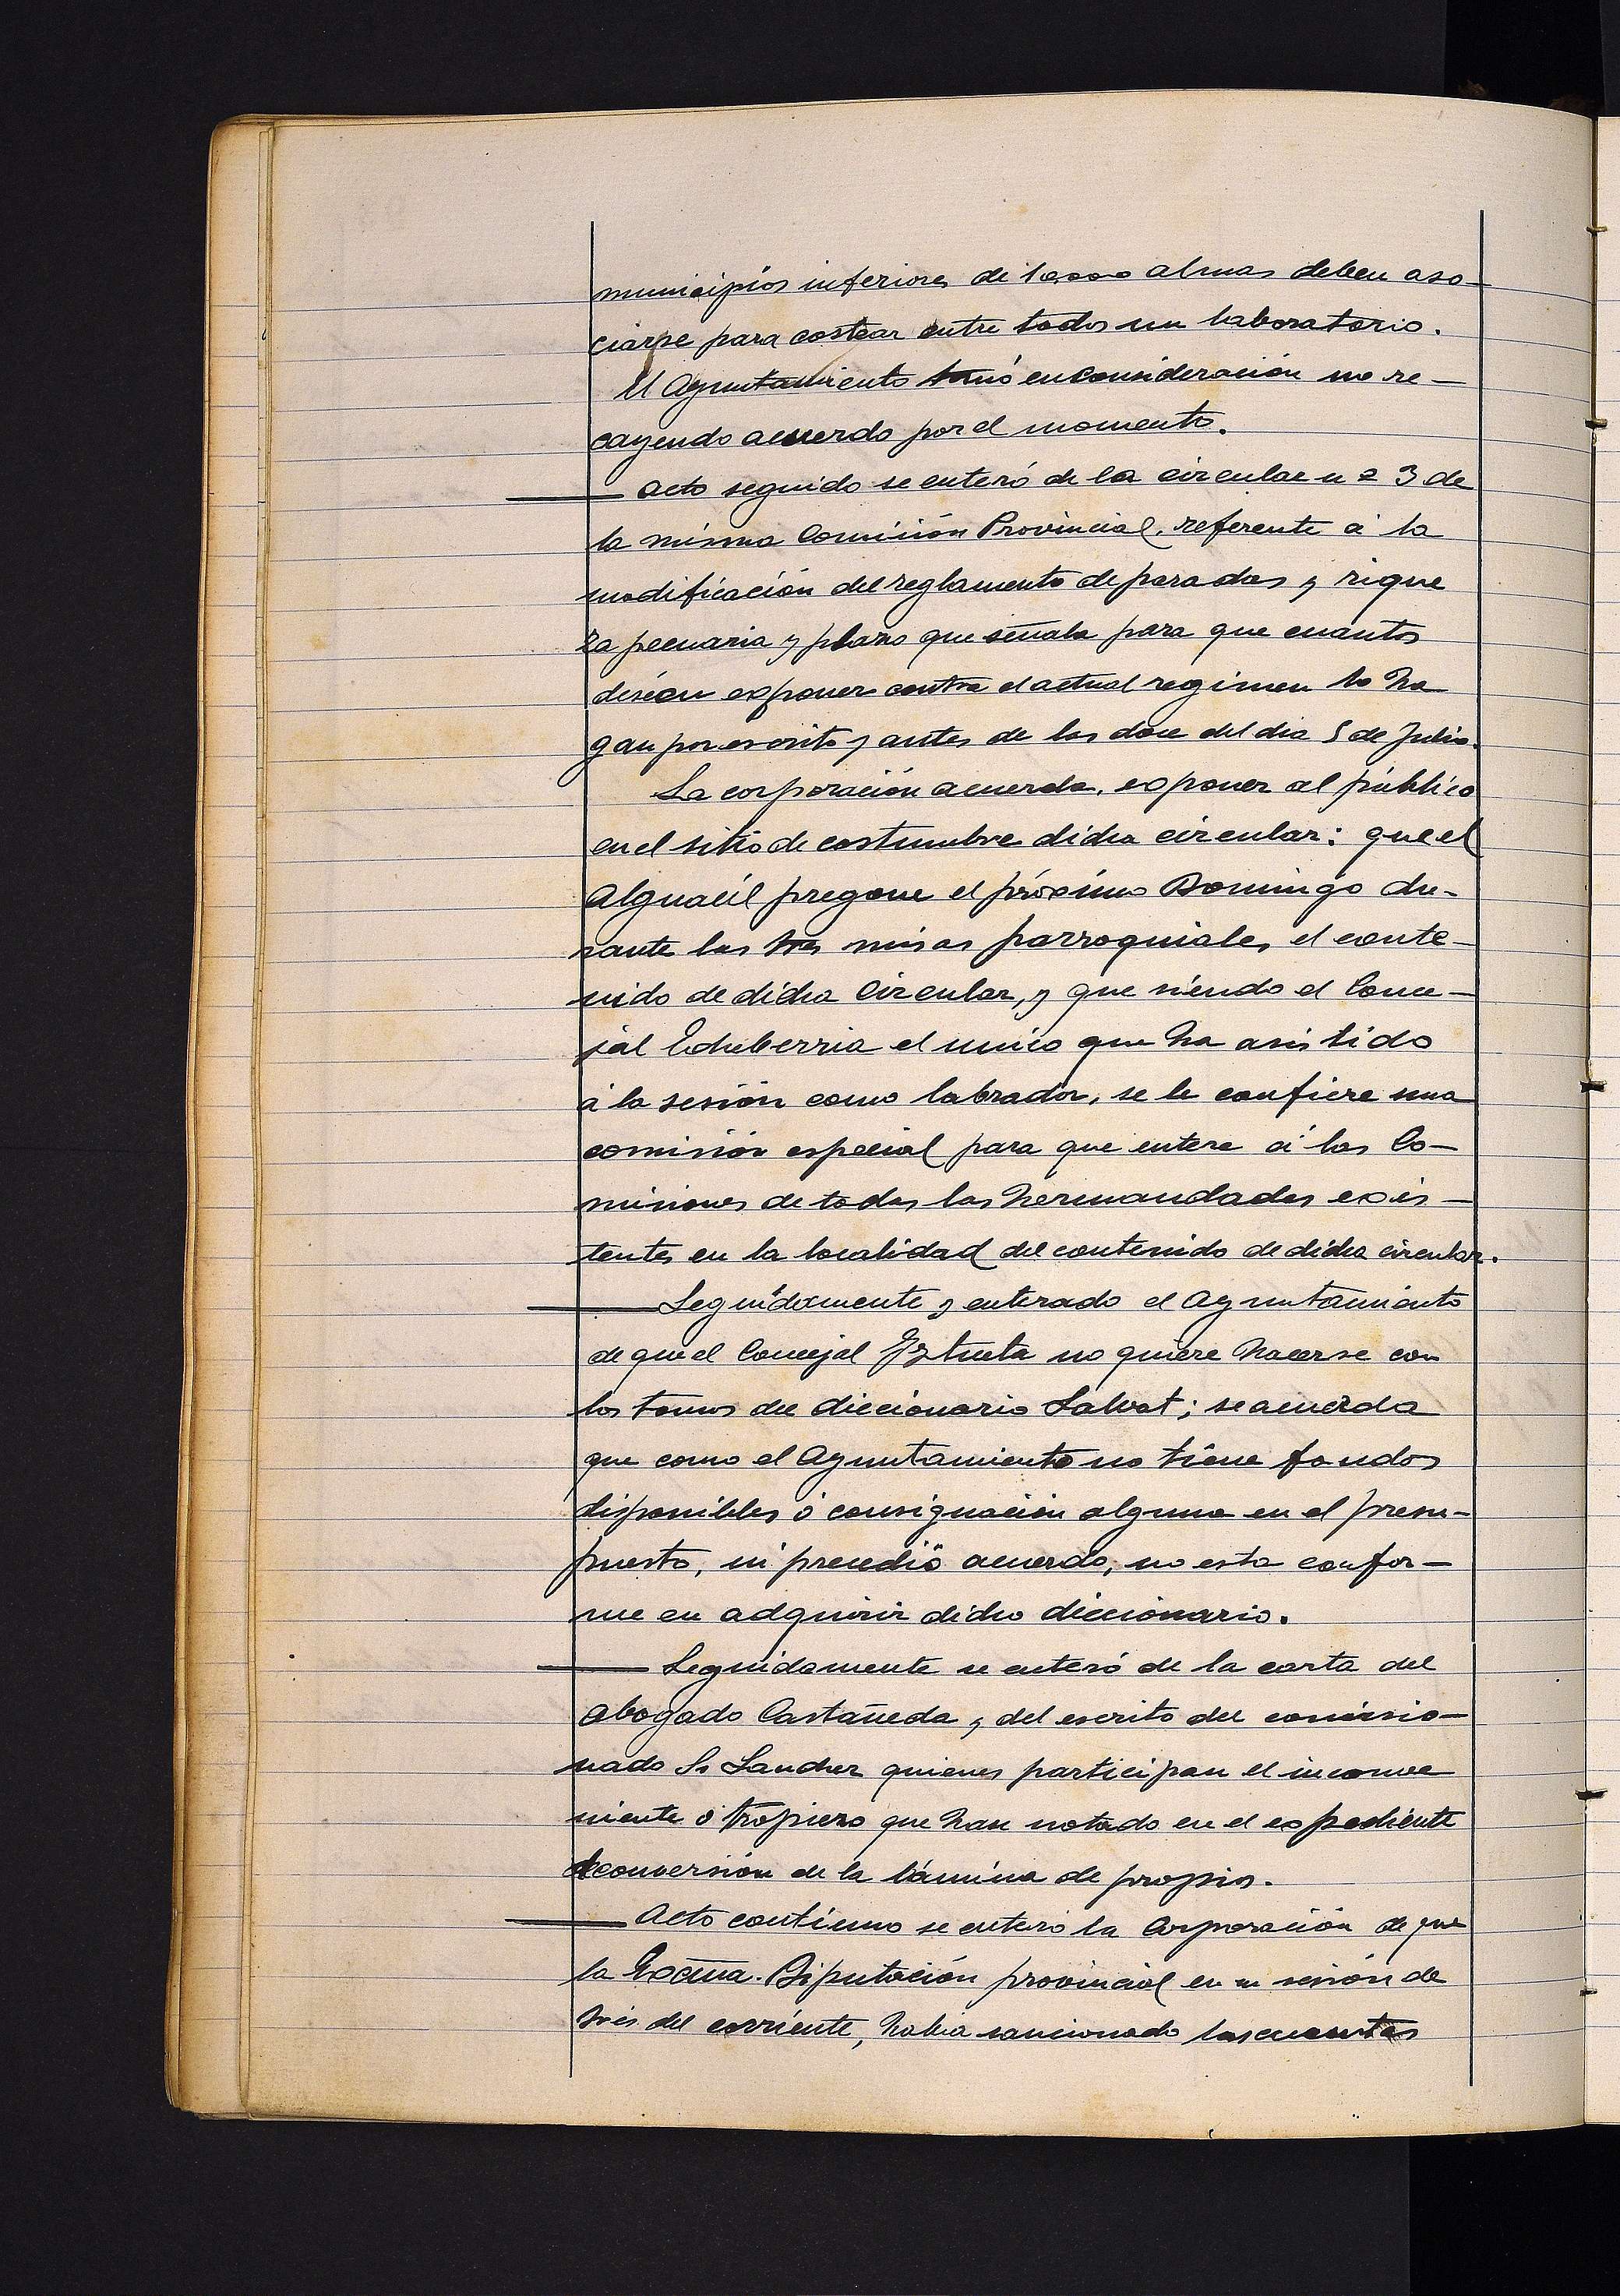 municipios inferiores de 10,000 almas deben aso-
ciarse para costear entre todos un laboratorio.
El Ayuntamiento tomó en consideración no re-
cayendo acuerdo por el momento.
Acto seguido se enteró de la circular nº 3 de
la misma Comisión Provincial, referente á la
modificación del reglamento de paradas y rique
za pecuaria y plazo que señala para que cuantos
deséan exponer contra el actual regimen lo ha
gan por escrito y antes de las doce del dia 5 de Julio.
La corporación acuerda, exponer al público
en el sitio de costumbre dicha circular: que el
Alguacíl pregone el próximo Domingo du-
rante las tres misas parroquiales el conte-
nido de dicha Circular, y que siendo el Conce-
jal Echeberria el unico que ha asistido
á la sesión como labrador, se le confiere una
comisión especial para que entere á las Co-
misiones de todas las hermandades exis-
tentes en la localidad del contenido de dicha circular.
Seguidamente y enterado el Ayuntamiento
de que el Concejal Iztueta no quiere hacerse con
los tomos del diccionario Salvat; se acuerda
que como el Ayuntamiento no tiene fondos
disponibles ó consignación alguna en el presu-
puesto, ni precedió acuerdo, no esta confor-
me en adquirir dicho diccionario.
Seguidamente se enteró de la carta del
abogado Castañeda y del escrito del comisio-
nado Sr Sanchez quienes participan el inconve
niente ó tropiezo que han notado en el expediente
de conversión de la lámina de propios.
Acto continuo se enteró la Corporación de que
la Excma. Diputación provincial en su sesión de
trés del corriente, habia sancionado las cuentas